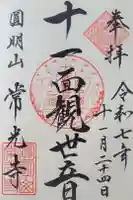 奉拝
令和七年
十一月二十四日
十一面観世音
圓明山
常光寺